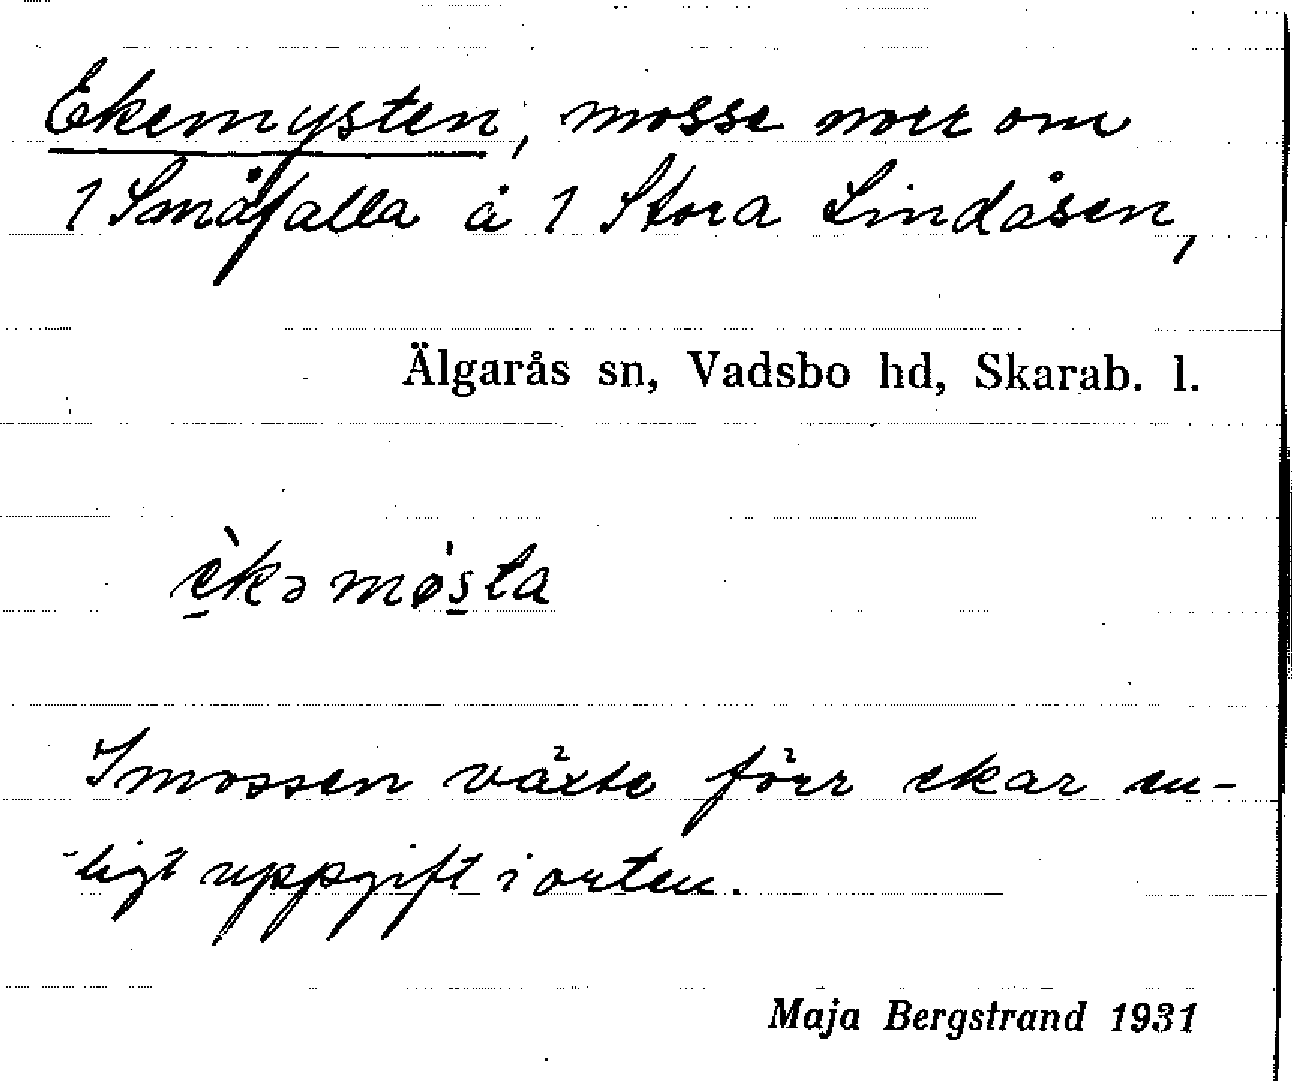 Ekemysten, mosse norr om
1 Småfalla å 1 Stora Lindåsen,
Älgarås sn, Vadsbo hd, Skarab. l.
è̠kə møˈs̠ta
I mossen växte förr ekar en-
ligt uppgift i orten.
Maja Bergstrand 1931